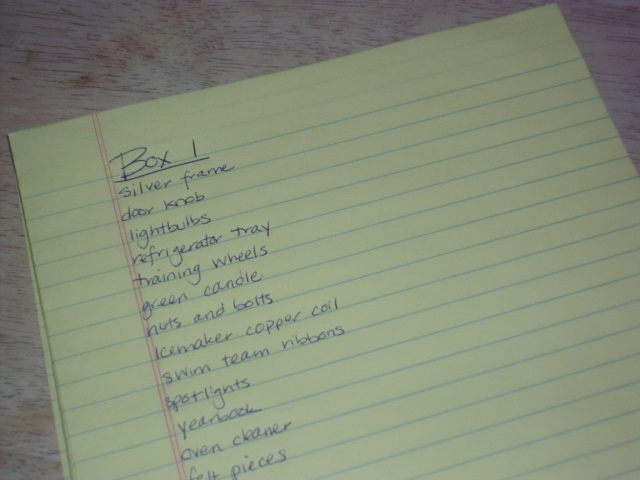 Box 1
silver frame
door knob
lightbulbs
refrigerator tray
training wheels
green candle
nuts and bolts
icemaker copper coil
swim team ribbons
spotlights
yearbook
oven cleaner
felt pieces